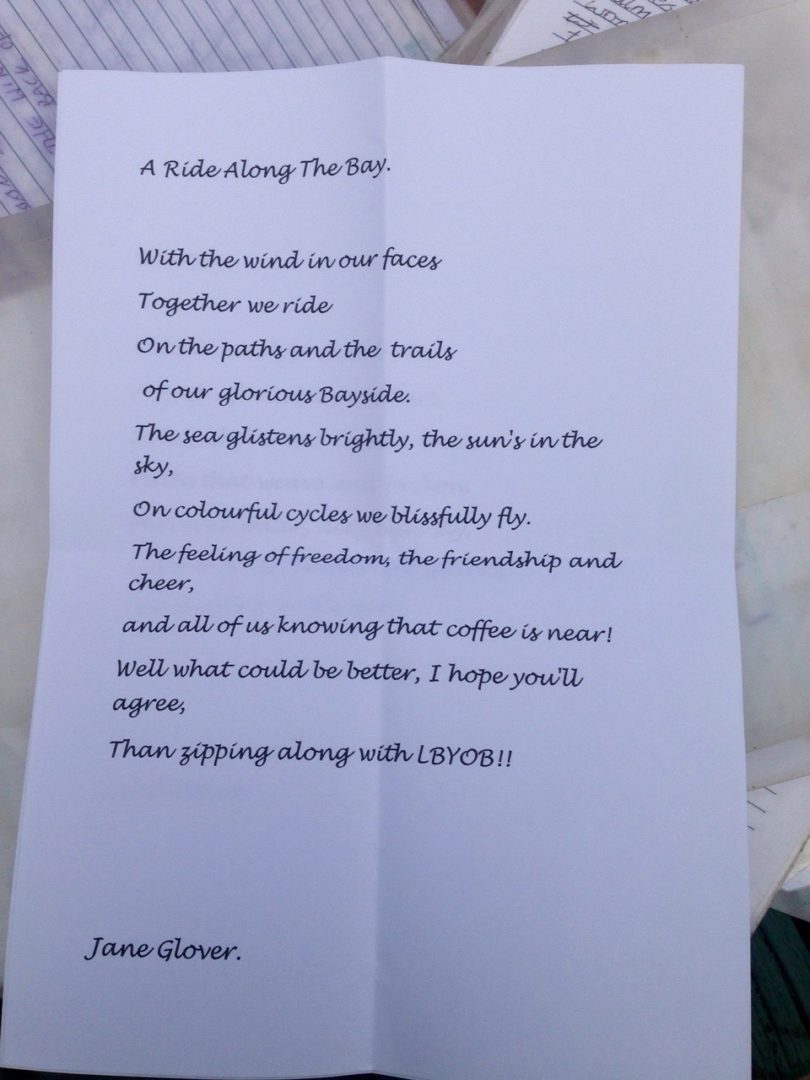 A Ride Along The Bay.
With the wind in our faces
Together we ride
On the paths and the trails
of our glorious Bayside.
The sea glistens brightly, the sun's in the
sky,
On colourful cycles we blissfully fly.
The feeling of freedom, the friendship and
cheer,
and all of us knowing that coffee is near!
Well what could be better, I hope you'll
agree,
Than zipping along with LBYOB!!
Jane Glover.
THE
BACK OF